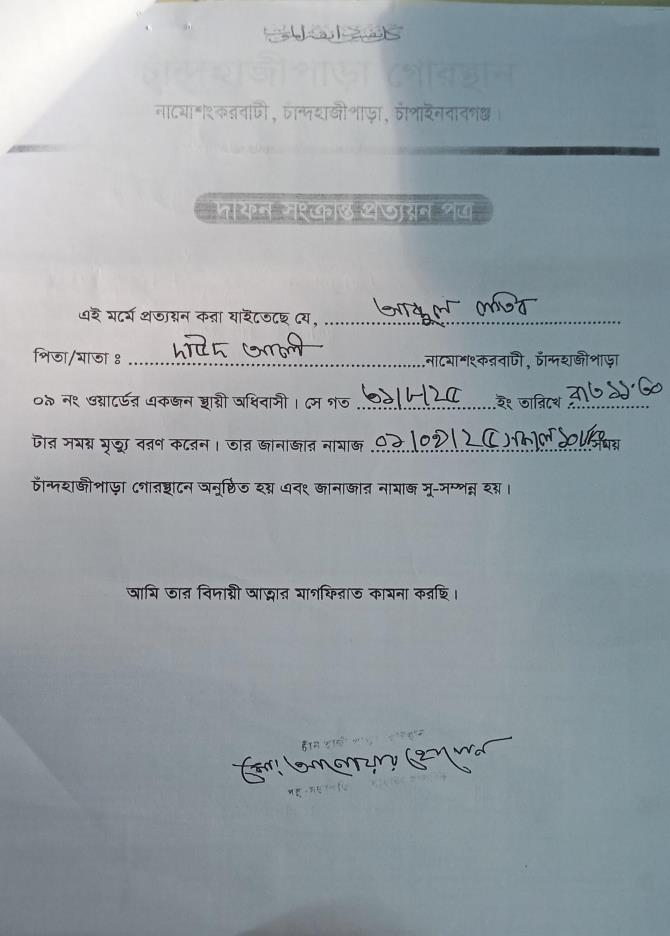 চাঁন্দহাজীপাড়া গোরস্থান
নামোশংকরবাটী, চাঁন্দহাজীপাড়া, চাঁপাইনবাবগঞ্জ।
দাফন সংক্রান্ত প্রত্যয়ন পত্র
এই মর্মে প্রত্যয়ন করা যাইতেছে যে, আব্দুল লতিব
পিতা/মাতা ঃ দাউদ আলী নামোশংকরবাটী, চাঁন্দহাজীপাড়া
০৯ নং ওয়ার্ডের একজন স্থায়ী অধিবাসী। সে গত ৩১/৮/২৫ ইং তারিখে রাত ১১:৩০
টার সময় মৃত্যু বরণ করেন। তার জানাজার নামাজ ০১/০৯/২৫ সকাল সময়
চাঁন্দহাজীপাড়া গোরস্থানে অনুষ্ঠিত হয় এবং জানাজার নামাজ সু-সম্পন্ন হয়।
আমি তার বিদায়ী আত্মার মাগফিরাত কামনা করছি।
মোঃ আনোয়ার হোসেন